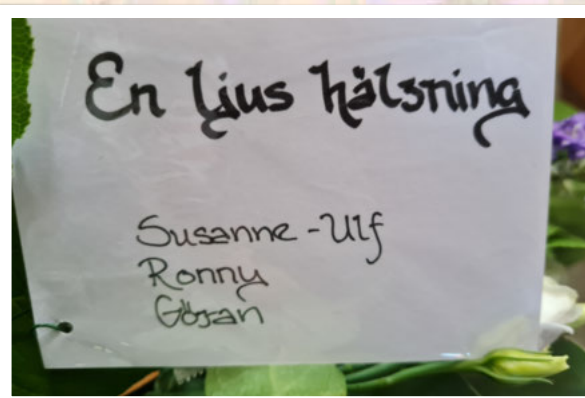 En ljus hälsning
Susanne - Ulf
Ronny
Göran